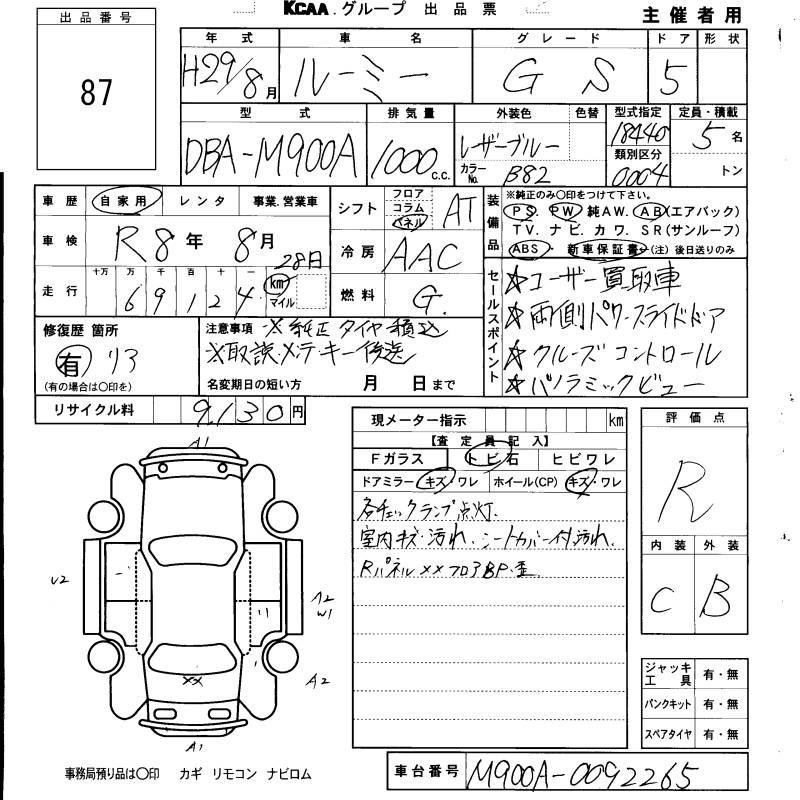 KCAA.グループ 出品票
主催者用
出品番号
87
年式 車名 グレード ドア 形状
H29/8月 ルーミー G S 5
型式 排気量 外装色 色替 型式指定 定員・積載
DBA-M900A 1000c.c. レーザーブルー 18440 5名
カラーNo. B82 類別区分 0004 トン
車歴 自家用 レンタ 事業.営業車
シフト フロア コラム パネル AT
装備品
※純正のみ〇印をつけて下さい。
PS. PW 純AW. AB(エアバック)
TV. ナビ. カワ. SR(サンルーフ)
ABS 新車保証書 (注)後日送りのみ
車検 R8年 8月 28日
冷房 AAC
走行 十万 万 千 百 十 一
69124 km マイル
燃料 G.
セールスポイント
☆ユーザー買取車
☆両側パワースライドドア
☆クルーズコントロール
☆パノラミックビュー
修復歴 箇所
有 リア
(有の場合は〇印を)
注意事項 ※純正タイヤ積込
※取説.メテ.キー後送
名変期日の短い方 月 日まで
リサイクル料 9,130円
現メーター指示 km
【査定員記入】
Fガラス トビ石 ヒビワレ
ドアミラー キズ・ワレ ホイール(CP) キズ・ワレ
各チェックランプ点灯.
室内キズ.汚れ.シートカバー付.汚れ.
Rパネル××フロアBP.歪
評価点
R
内装 外装
C B
ジャッキ工具 有・無
パンクキット 有・無
スペアタイヤ 有・無
A1
U2
A2
W1
A2
××
A1
事務局預り品は〇印 カギ リモコン ナビロム
車台番号 M900A-0092265